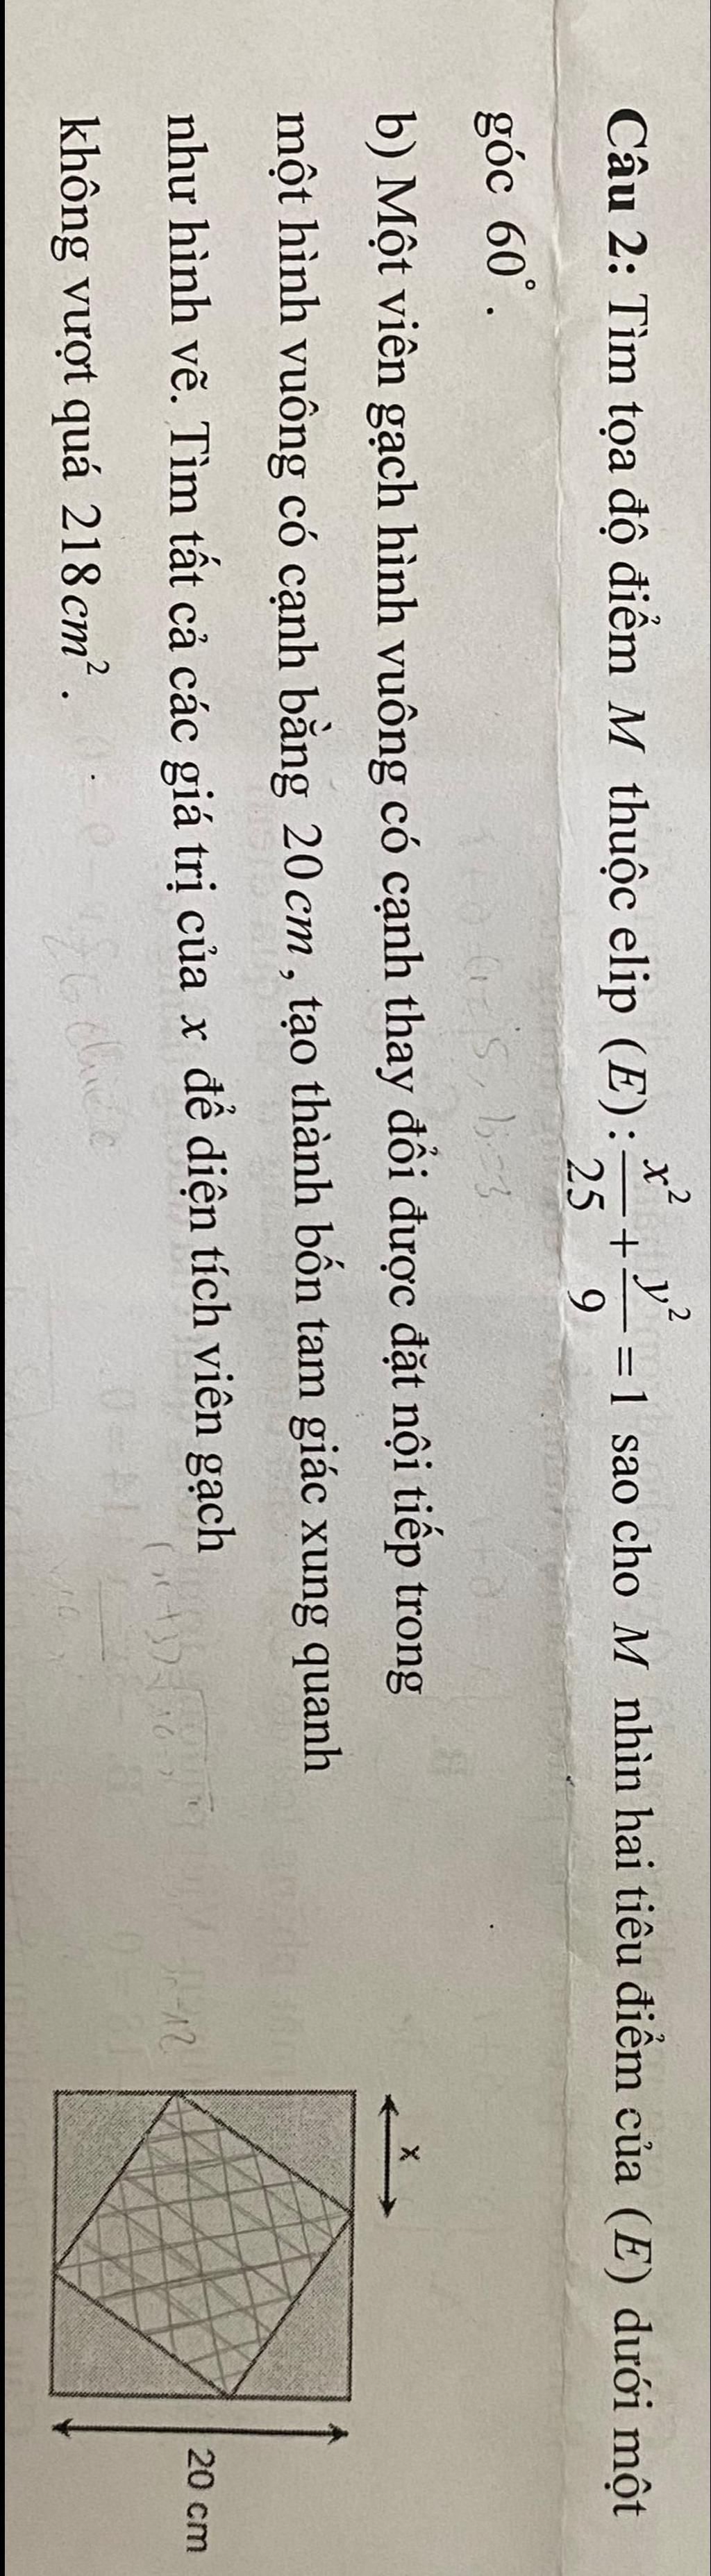 Câu 2: Tìm tọa độ điểm M thuộc elip (E): x²/25 + y²/9 = 1 sao cho M nhìn hai tiêu điểm của (E) dưới một
góc 60°.
b) Một viên gạch hình vuông có cạnh thay đổi được đặt nội tiếp trong
một hình vuông có cạnh bằng 20cm, tạo thành bốn tam giác xung quanh
như hình vẽ. Tìm tất cả các giá trị của x để diện tích viên gạch
không vượt quá 218cm².
x
20 cm